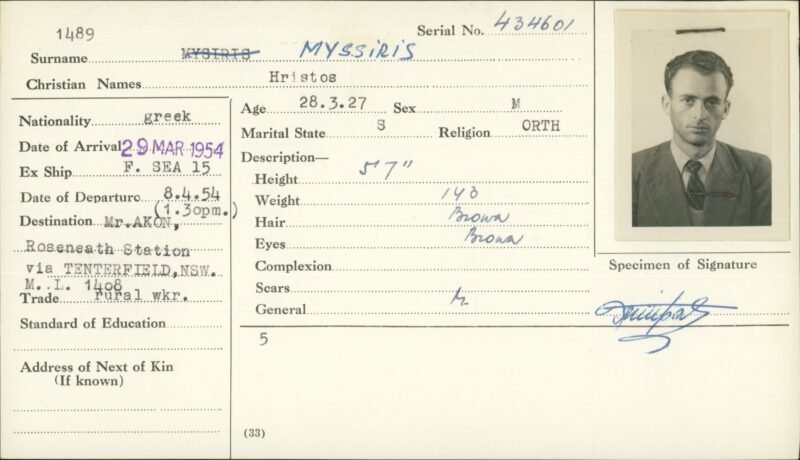 1489
Serial No. 434601
Surname MYSIRIS MYSSIRIS
Christian Names Hristos
Nationality greek
Date of Arrival 29 MAR 1954
Ex Ship F. SEA 15
Date of Departure 8.4.54
(1.30pm.)
Destination Mr.AKON,
Roseneath Station
via TENTERFIELD,NSW.
M. I. 1408
Trade rural wkr.
Standard of Education
Address of Next of Kin
(If known)
Age 28.3.27 Sex M
Marital State S Religion ORTH
Description—
Height 5'7"
Weight 143
Hair Brown
Eyes Brown
Complexion
Scars
General
5
(33)
Specimen of Signature